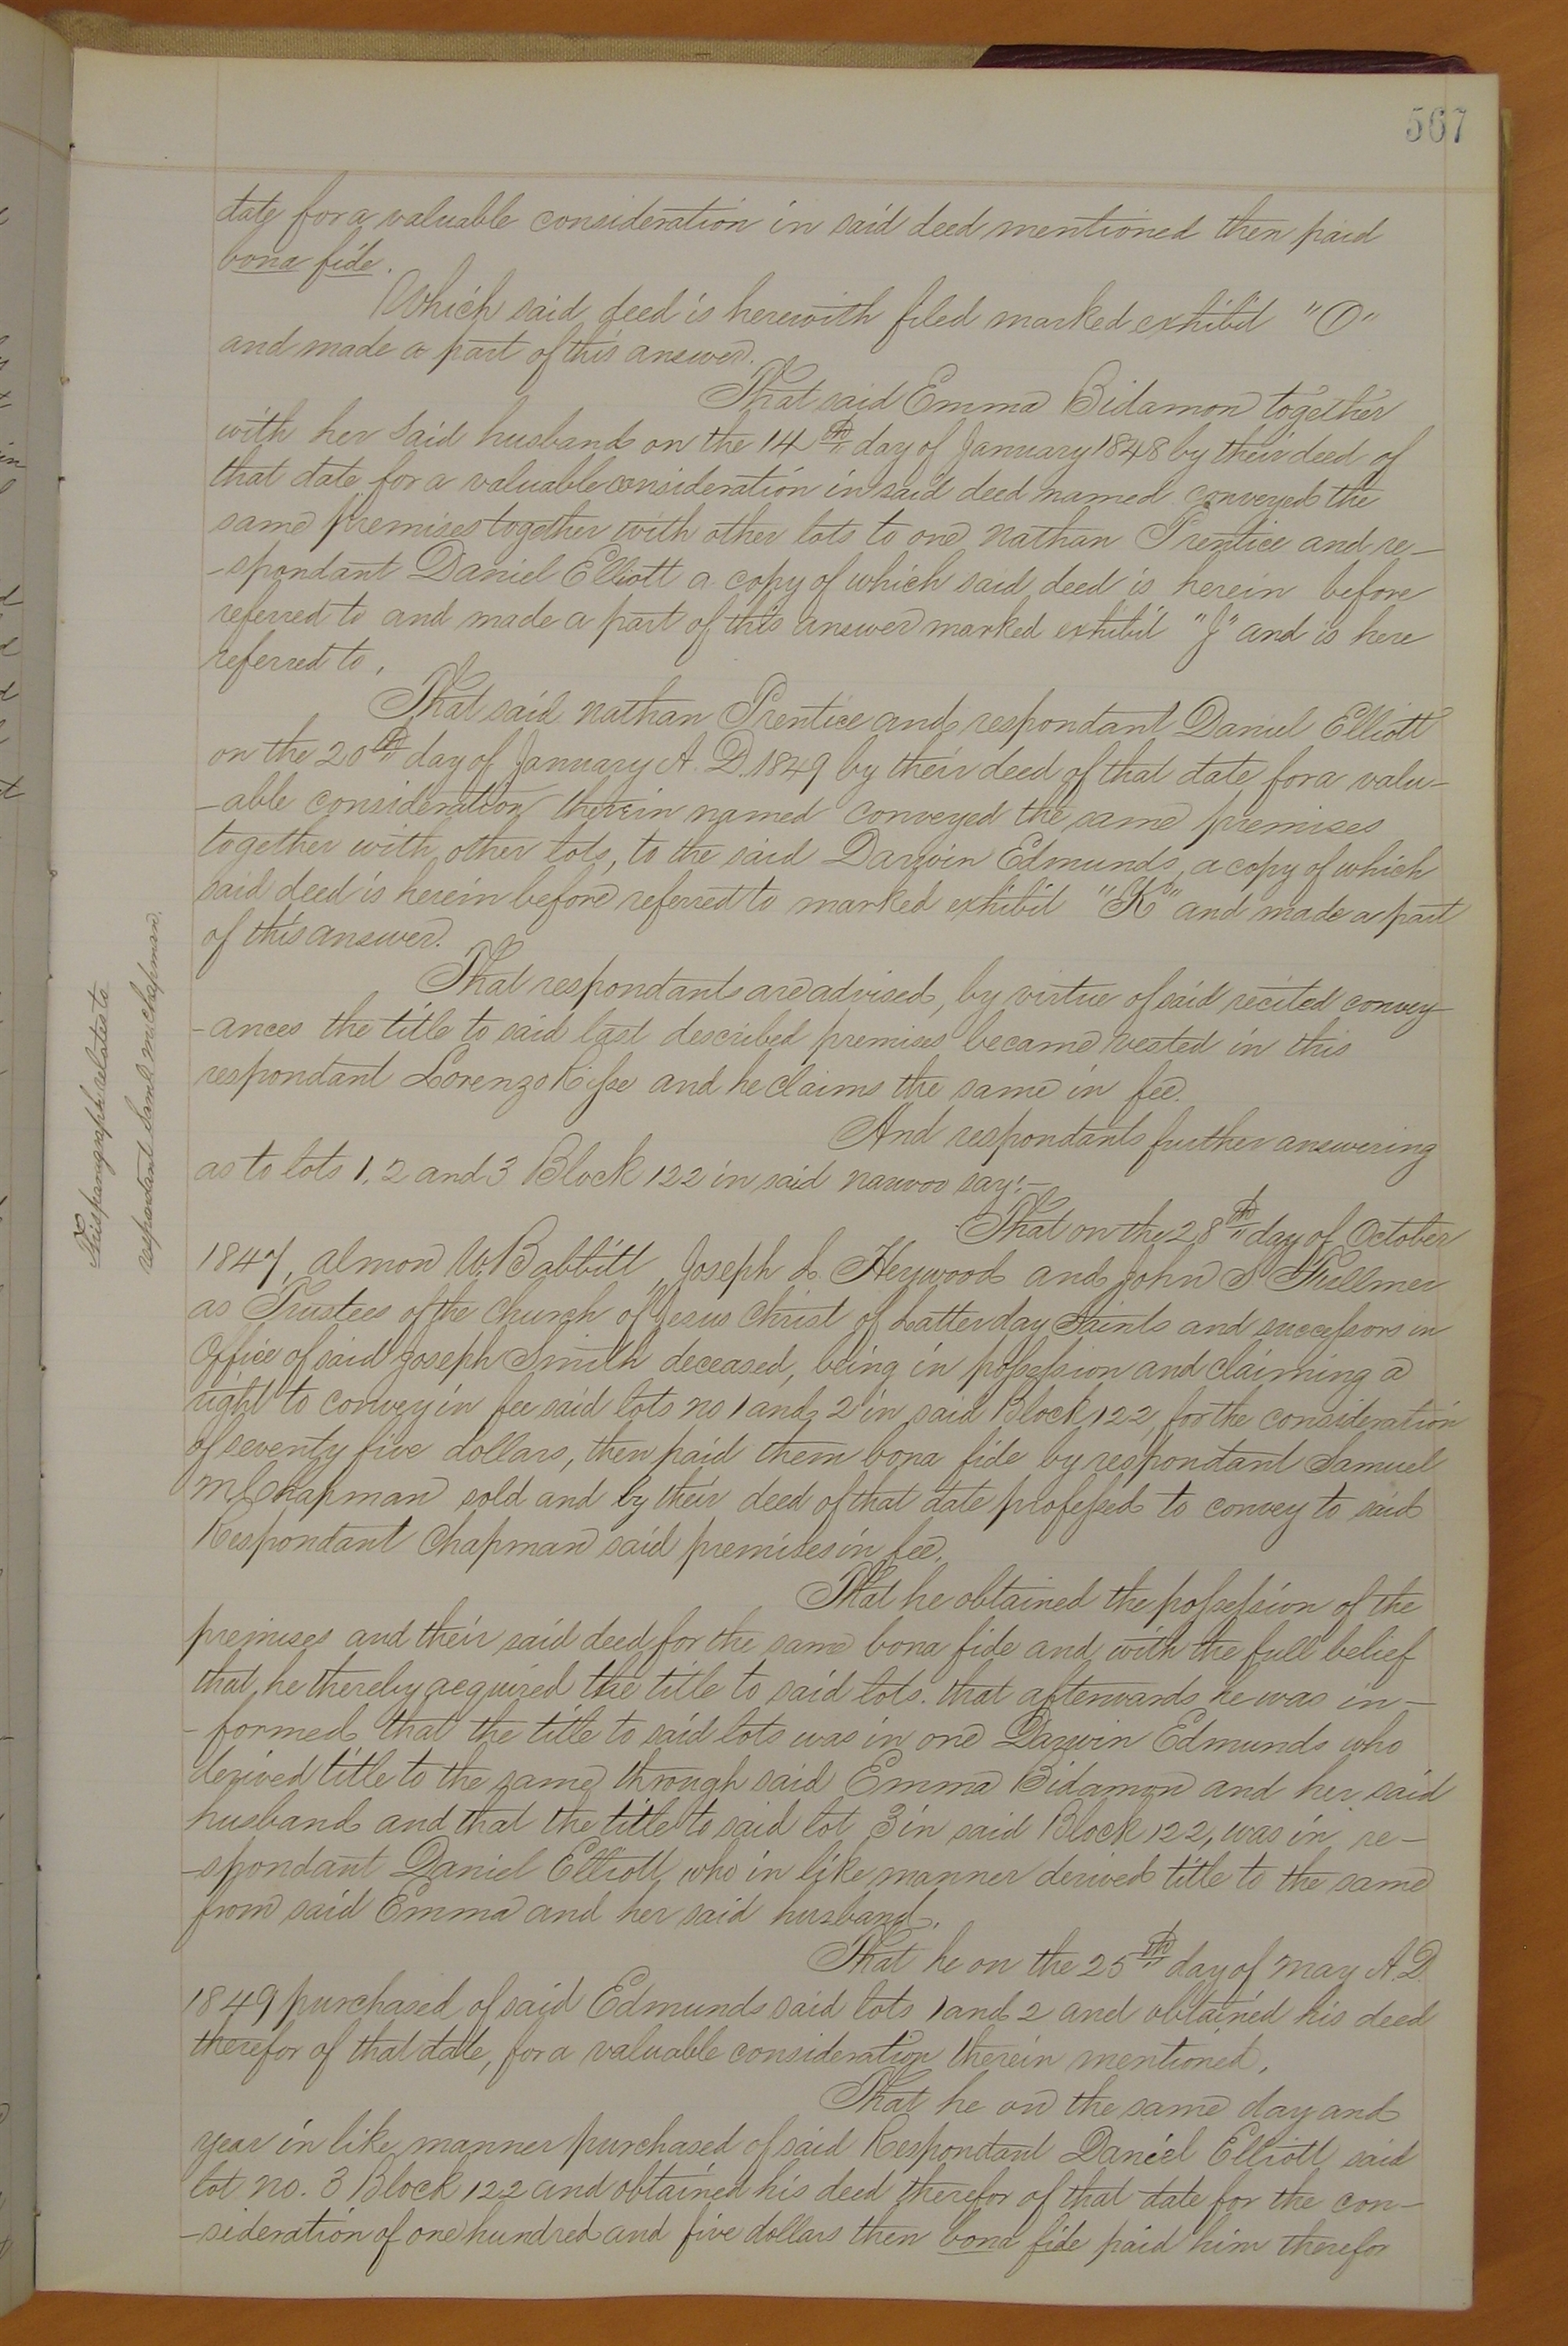 567
date for a valuable consideration in said deed mentioned then paid
bona fide.
Which said deed is herewith filed marked exhibit "O"
and made a part of this answer.
That said Emma Bidamon together
with her said husband on the 14th day of January 1848 by their deed of
that date for a valuable consideration in said deed named conveyed the
same premises together with other lots to one Nathan Prentice and re-
-spondant Daniel Elliott a copy of which said deed is herein before
referred to and made a part of this answer marked exhibit "J" and is here
referred to.
That said Nathan Prentice and respondant Daniel Elliott
on the 20th day of January A.D. 1849 by their deed of that date for a valu-
-able consideration therein named conveyed the same premises
together with other lots, to the said Darwin Edmunds, a copy of which
said deed is herein before referred to marked exhibit "K" and made a part
of this answer.
That respondants are advised, by virtue of said recited convey-
-ances the title to said last described premises became vested in this
respondant Lorenzo and he claims the same in fee.
And respondants further answering
as to lots 1, 2 and 3 Block 122 in said Nauvoo say:-
This paragraph relates to
respondant Saml. McChapman.
That on the 28th day of October
1847, Almon W. Babbitt, Joseph L. Heywood and John S Fullmer
as Trustees of the Church of Jesus Christ of Latter day Saints and successors in
Office of said Joseph Smith deceased, being in possession and claiming a
right to convey in fee said lots no 1 and 2 in said Block 122, for the consideration
of seventy five dollars, then paid them bona fide by respondant Samuel
McChapman sold and by their deed of that date professed to convey to said
Respondant Chapman said premises in fee.
That he obtained the possession of the
premises and their said deed for the same bona fide and with the full belief
that he thereby acquired the title to said lots. that afterwards he was in-
-formed that the title to said lots was in one Darwin Edmunds who
derived title to the same through said Emma Bidamon and her said
husband and that the title to said lot 3 in said Block 122, was in re-
-spondant Daniel Elliott who in like manner derived title to the same
from said Emma and her said husband.
That he on the 25th day of May A.D.
1849 purchased of said Edmunds said lots 1 and 2 and obtained his deed
therefor of that date, for a valuable consideration therein mentioned.
That he on the same day and
year in like manner purchased of said Respondant Daniel Elliott said
lot no. 3 Block 122 and obtained his deed therefor of that date for the con-
-sideration of one hundred and five dollars then bona fide paid him therefor